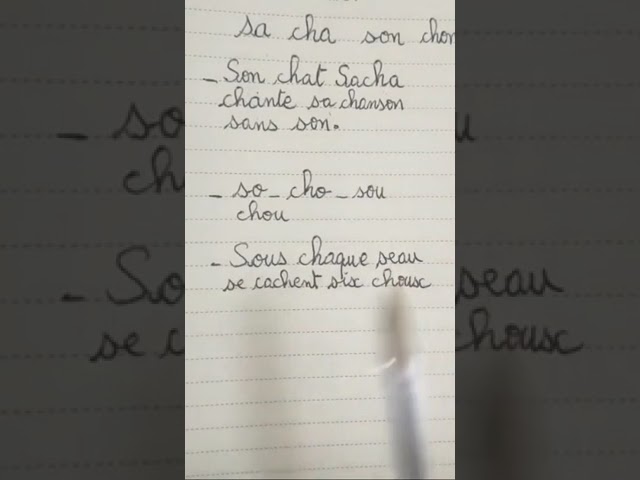 sa cha son chon
- Son chat Sacha
chante sa chanson
sans son.
- so - cho - sou
chou
- Sous chaque seau
se cachent six choux